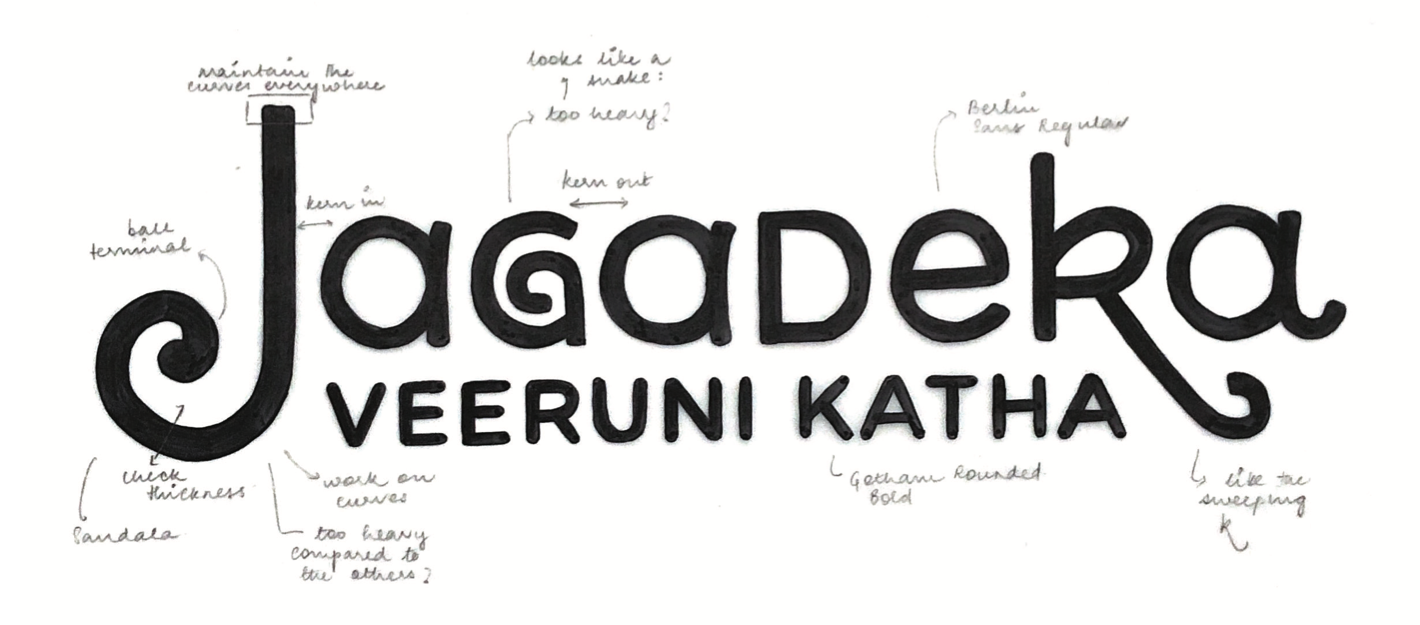 maintain the
curves everywhere
looks like a
snake:
too heavy?
Berlin
Sans Regular
kern in
kern out
ball
terminal
JaGaDeka
VEERUNI KATHA
check
thickness
work on
curves
Gotham Rounded
Bold
like the
sweeping
k
Sandala
too heavy
compared to
the others?